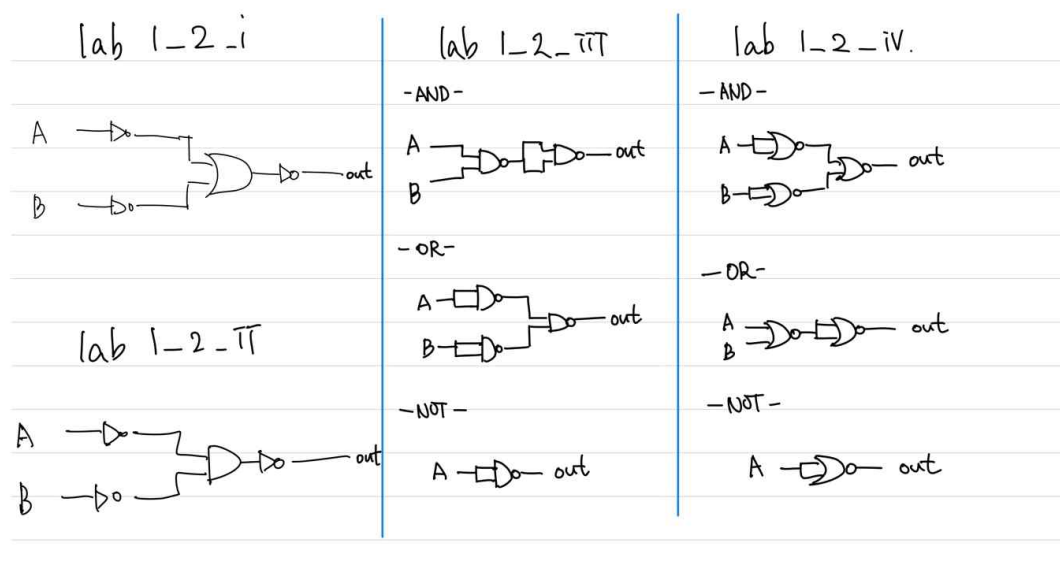 lab 1_2_i
A
B
out
lab 1_2_ii
A
B
out
lab 1_2_iii
-AND-
A
B
out
-OR-
A
B
out
-NOT-
A out
lab 1_2_iv.
-AND-
A
B
out
-OR-
A
B
out
-NOT-
A out